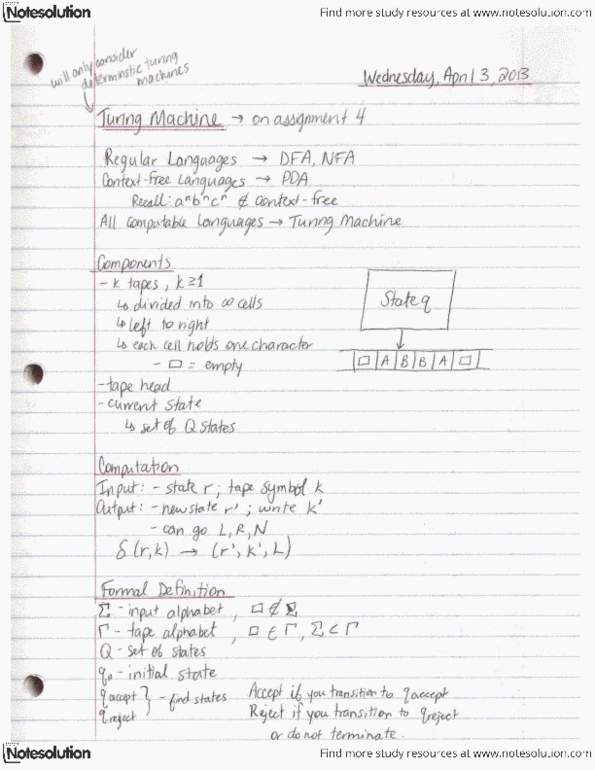 Notesolution
Find more study resources at www.notesolution.com
will only consider
deterministic turing
machines
Wednesday, April 3, 2013
Turing Machine → on assignment 4
Regular Languages → DFA, NFA
Context-Free Languages → PDA
Recall: aⁿbⁿcⁿ ∉ context-free
All Computable Languages → Turing Machine
Components
- k tapes, k ≥ 1
↳ divided into ∞ cells
↳ left to right
↳ each cell holds one character
- □ = empty
- tape head
- current state
↳ set of Q states
State q
□ A B B A □
Computation
Input: - state r; tape symbol k
Output: - new state r'; write k'
- can go L, R, N
δ(r,k) → (r', k', L)
Formal Definition
Σ - input alphabet, □ ∉ Σ
Γ - tape alphabet, □ ∈ Γ, Σ ⊂ Γ
Q - set of states
q₀ - initial state
q accept } - final states Accept if you transition to q accept
q reject Reject if you transition to q reject
or do not terminate.
Notesolution
Find more study resources at www.notesolution.com